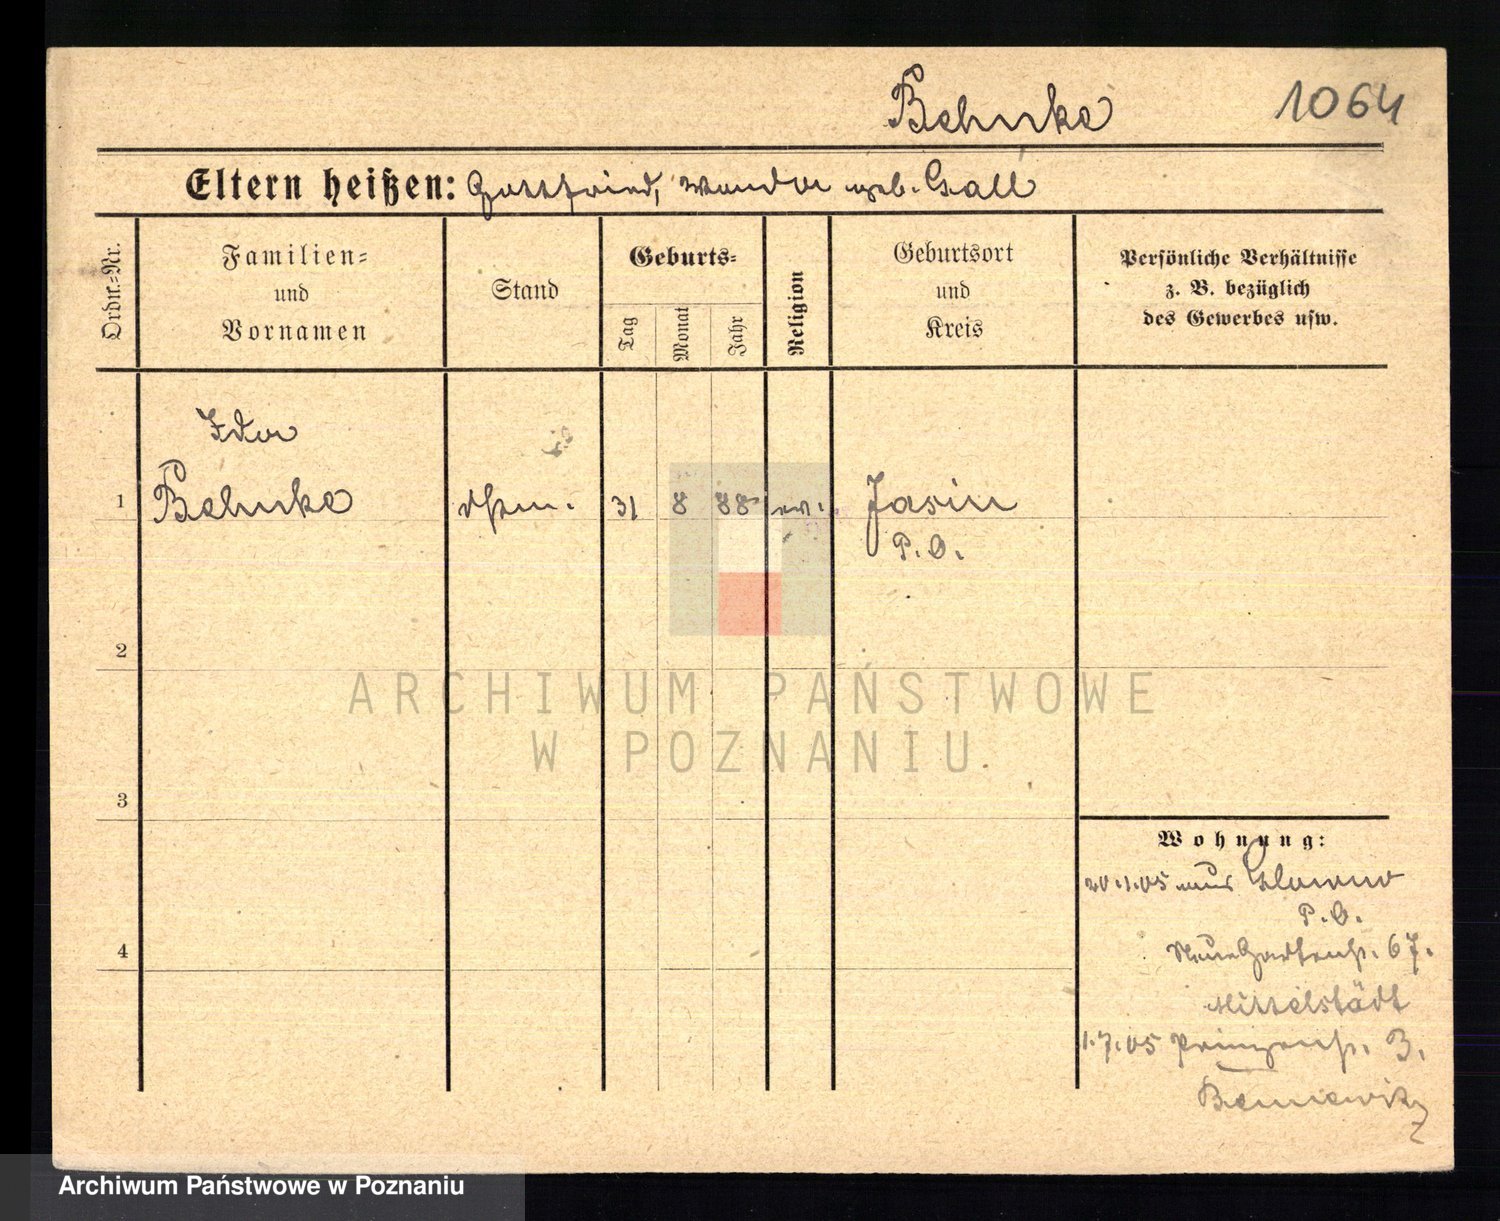 Behnke 1064
Eltern heißen: Gottfried, Wanda geb. Gall
Ordn.-Nr.
Familien-
und
Vornamen
Stand
Geburts-
Tag
Monat
Jahr
Religion
Geburtsort
und
Kreis
Persönliche Verhältnisse
z. B. bezüglich
des Gewerbes usw.
Ida
1 Behnke 31 8 88 ev. Jasin
P. O.
2
3
4
ARCHIWUM PAŃSTWOWE
W POZNANIU
Wohnung:
aus Glowno
P. O.
Neue Gartenstr. 67.
Mittelstädt
1.7.05 Prinzenstr. 3.
Archiwum Państwowe w Poznaniu